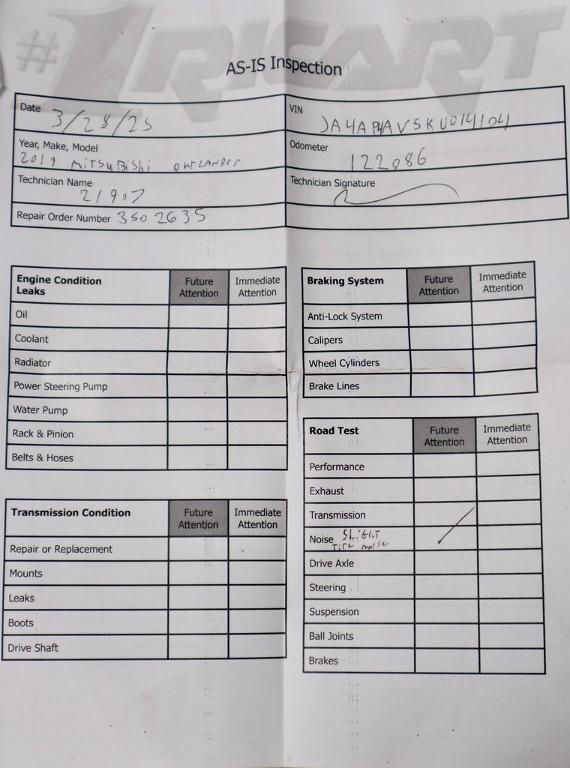 #1 RICART
AS-IS Inspection
Date 3/28/25
VIN JA4APHAVSKU014104
Year, Make, Model
2019 MITSUBISHI OUTLANDER
Odometer 122086
Technician Name
21907
Technician Signature
Repair Order Number 3502635
Engine Condition Leaks Future Attention Immediate Attention
Oil
Coolant
Radiator
Power Steering Pump
Water Pump
Rack & Pinion
Belts & Hoses
Transmission Condition Future Attention Immediate Attention
Repair or Replacement
Mounts
Leaks
Boots
Drive Shaft
Braking System Future Attention Immediate Attention
Anti-Lock System
Calipers
Wheel Cylinders
Brake Lines
Road Test Future Attention Immediate Attention
Performance
Exhaust
Transmission
Noise SLIGHT
TIRE NOISE
Drive Axle
Steering
Suspension
Ball Joints
Brakes